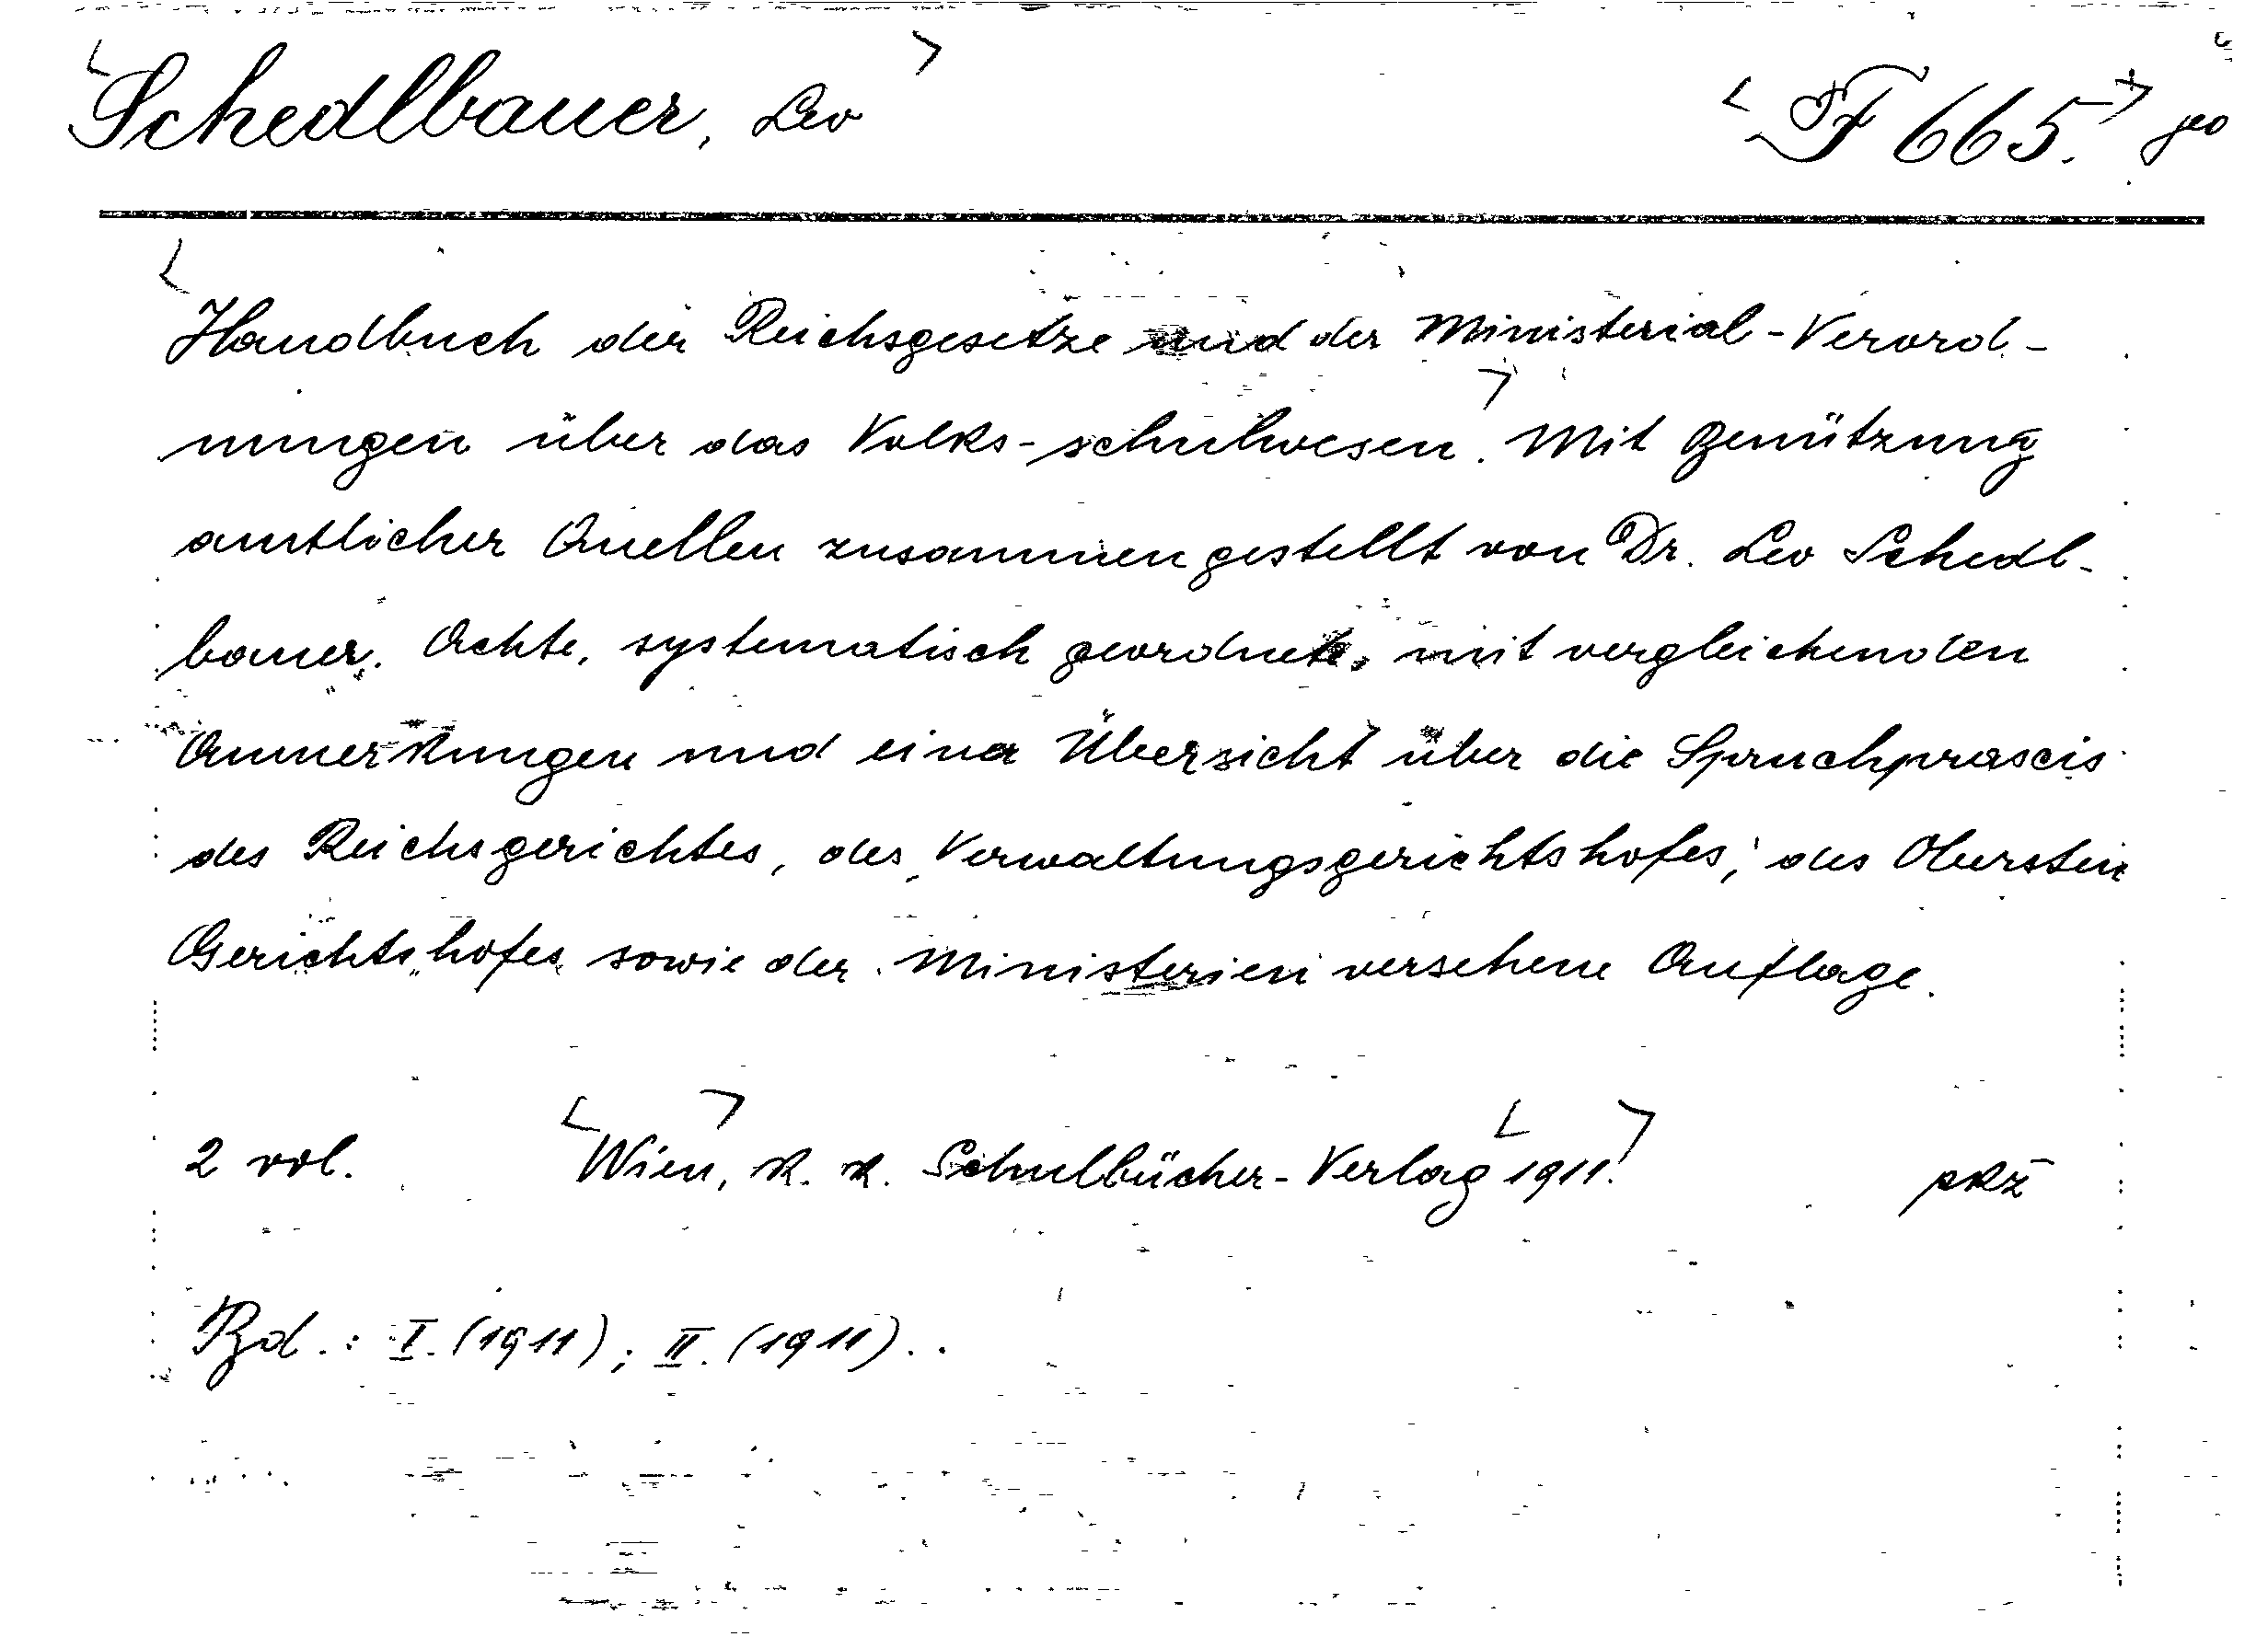 Schedlbauer, Leo F 665.
Handbuch der Reichsgesetze und der Ministerial-Verord-
nungen über das Volks-schulwesen. Mit Benützung
amtlicher Quellen zusammengestellt von Dr. Leo Schedl-
bauer. Achte, systematisch geordnete, mit vergleichenden
Anmerkungen und einer Übersicht über die Spruchpraxis
des Reichsgerichtes, des Verwaltungsgerichtshofes, des Obersten
Gerichtshofes sowie der Ministerien versehene Auflage.
2 vol. Wien, K. K. Schulbücher-Verlag 1911.
Bd.: I. (1911); II. (1911).